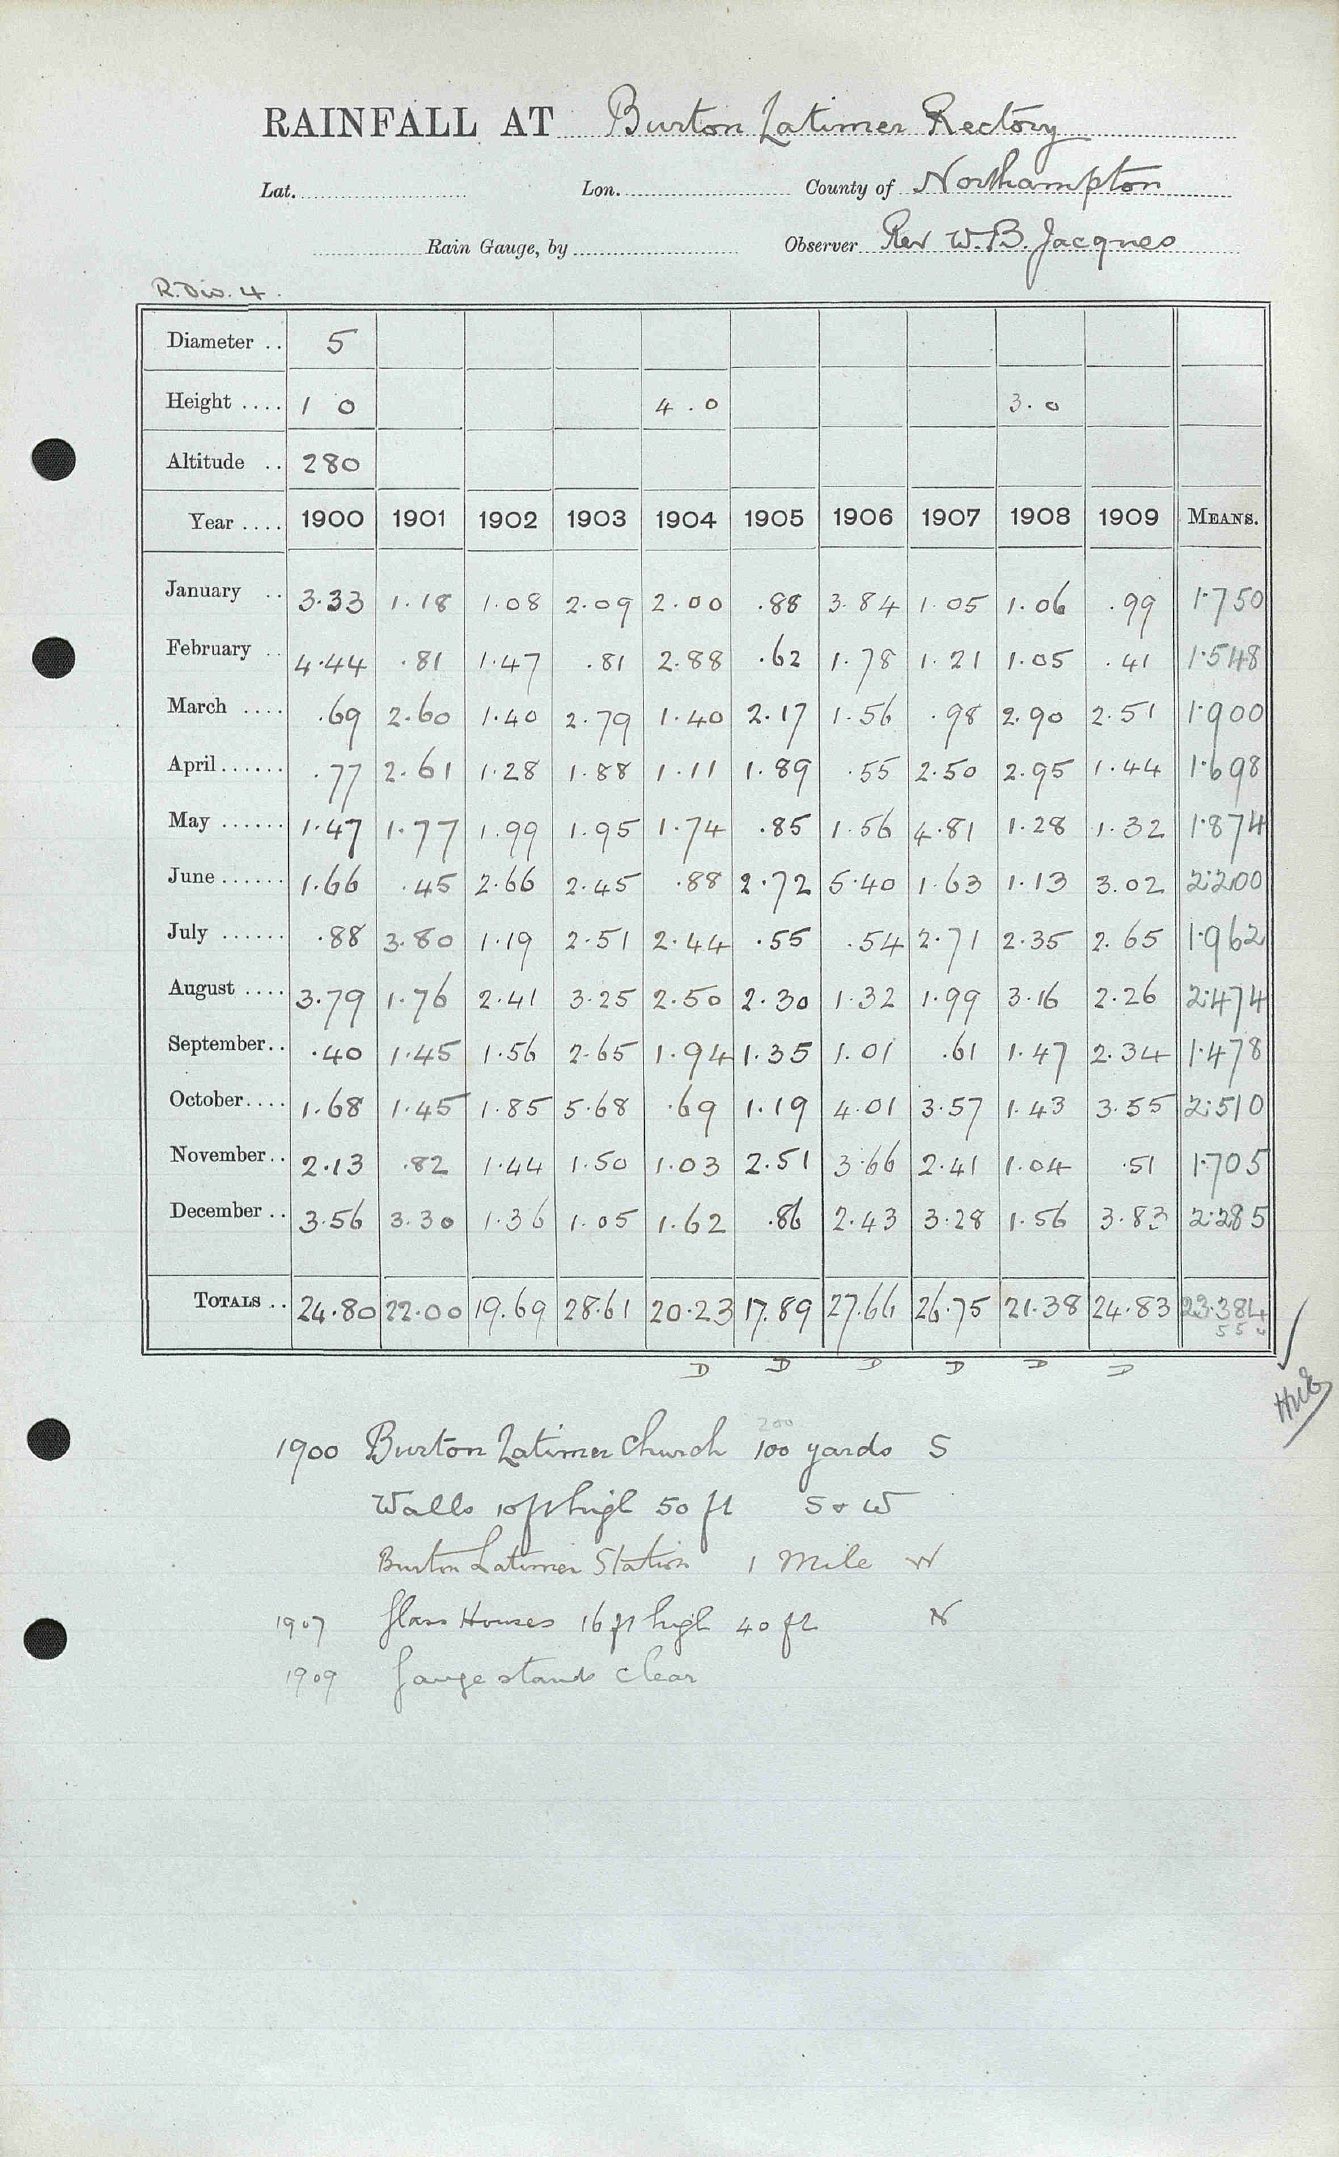 RAINFALL AT Burton Latimer Rectory
Lat. Lon. County of Northampton
Rain Gauge, by Observer Rev W. B. Jacques
R. Div. 4.
Diameter .. 5
Height .... 1 0 4.0 3.0
Altitude .. 280
Year .... 1900 1901 1902 1903 1904 1905 1906 1907 1908 1909 MEANS.
January .. 3.33 1.18 1.08 2.09 2.00 .88 3.84 1.05 1.06 .99 1.750
February .. 4.44 .81 1.47 .81 2.88 .62 1.78 1.21 1.05 .41 1.548
March .... .69 2.60 1.40 2.79 1.40 2.17 1.56 .98 2.90 2.51 1.900
April ...... .77 2.61 1.28 1.88 1.11 1.89 .55 2.50 2.95 1.44 1.698
May ...... 1.47 1.77 1.99 1.95 1.74 .85 1.56 4.81 1.28 1.32 1.874
June ...... 1.66 .45 2.66 2.45 .88 2.72 5.40 1.63 1.13 3.02 2.200
July ...... .88 3.80 1.19 2.51 2.44 .55 .54 2.71 2.35 2.65 1.962
August .... 3.79 1.76 2.41 3.25 2.50 2.30 1.32 1.99 3.16 2.26 2.474
September.. .40 1.45 1.56 2.65 1.94 1.35 1.01 .61 1.47 2.34 1.478
October.... 1.68 1.45 1.85 5.68 .69 1.19 4.01 3.57 1.43 3.55 2.510
November.. 2.13 .82 1.44 1.50 1.03 2.51 3.66 2.41 1.04 .51 1.705
December .. 3.56 3.30 1.36 1.05 1.62 .86 2.43 3.28 1.56 3.83 2.285
TOTALS .. 24.80 22.00 19.69 28.61 20.23 17.89 27.66 26.75 21.38 24.83 23.384
D D D D D D
200
1900 Burton Latimer Church 100 yards S
Walls 10 ft high 50 ft S & W
Burton Latimer Station 1 Mile W
1907 Glass Houses 16 ft high 40 ft N
1909 Gauge stands clear